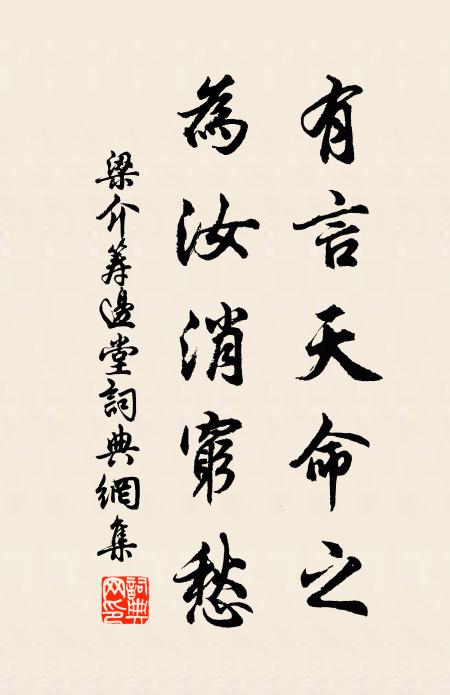 有言天命之
為汝消窮愁
梁介籌邊堂詞典網集
詞典網印